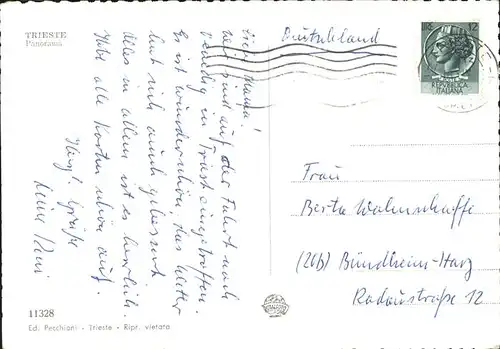 TRIESTE
Panorama
Deutschland
12
REPUBBLICA
ITALIANA
Liebe Mama!
wir sind auf der Fahrt nach
Venedig in Triest eingetroffen.
Es ist wunderschön, das Wetter
hat sich auch gebessert.
Alles in allem ist es herrlich.
Hebe alle Karten schön auf.
Herzl. Grüße
Frau
Berta Wohnschaffe
(20b) Bündheim-Harz
Radaustraße 12
11328
Ed. Pecchiari - Trieste - Ripr. vietata